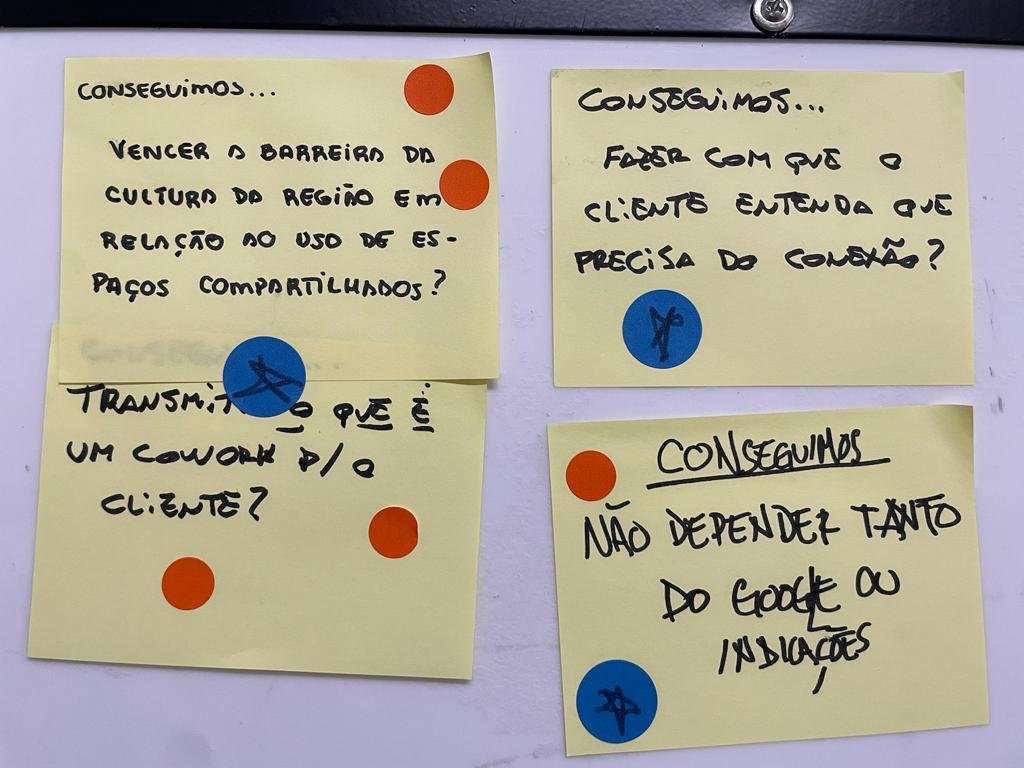 CONSEGUIMOS...
VENCER A BARREIRA DA
CULTURA DA REGIÃO EM
RELAÇÃO AO USO DE ES-
PAÇOS COMPARTILHADOS?
TRANSMIT O QUE É
UM COWORK P/ O
CLIENTE?
CONSEGUIMOS...
FAZER COM QUE O
CLIENTE ENTENDA QUE
PRECISA DO CONEXÃO?
CONSEGUIMOS
NÃO DEPENDER TANTO
DO GOOGLE OU
INDICAÇÕES